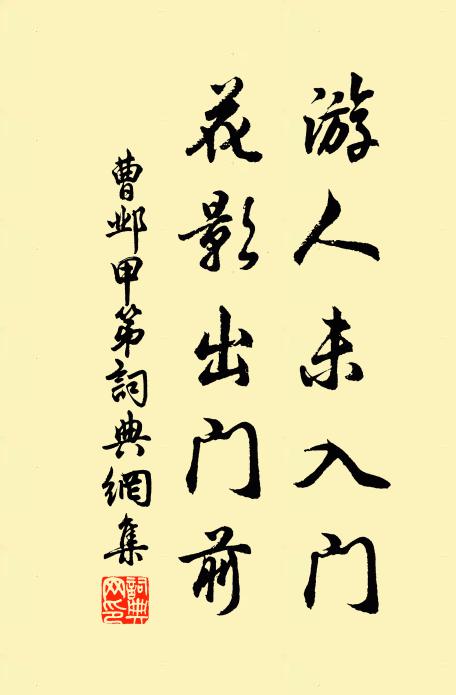 游人未入门
花影出门前
曹邺甲第詞典網集
詞典网印